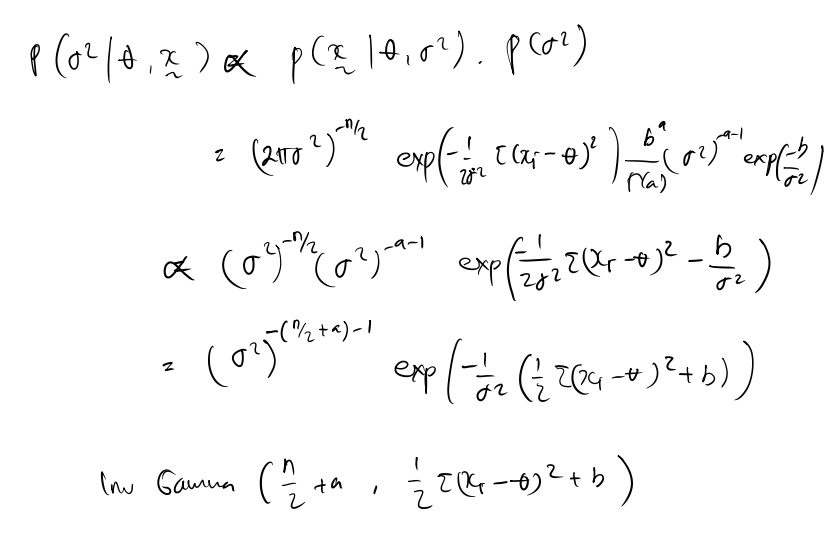 p(σ²|θ, x̰) ∝ p(x̰|θ, σ²). p(σ²)
= (2πσ²)^(-n/2) exp(-1/(2σ²) Σ(xᵢ-θ)²) b^a/Γ(a) (σ²)^(-a-1) exp(-b/σ²)
∝ (σ²)^(-n/2) (σ²)^(-a-1) exp(-1/(2σ²) Σ(xᵢ-θ)² - b/σ²)
= (σ²)^(-(n/2+a)-1) exp(-1/σ² (1/2 Σ(xᵢ-θ)²+b))
Inv Gamma (n/2 +a, 1/2 Σ(xᵢ-θ)²+b)